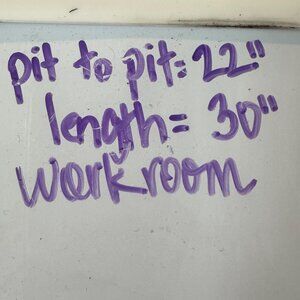 pit to pit: 22"
length = 30"
workroom